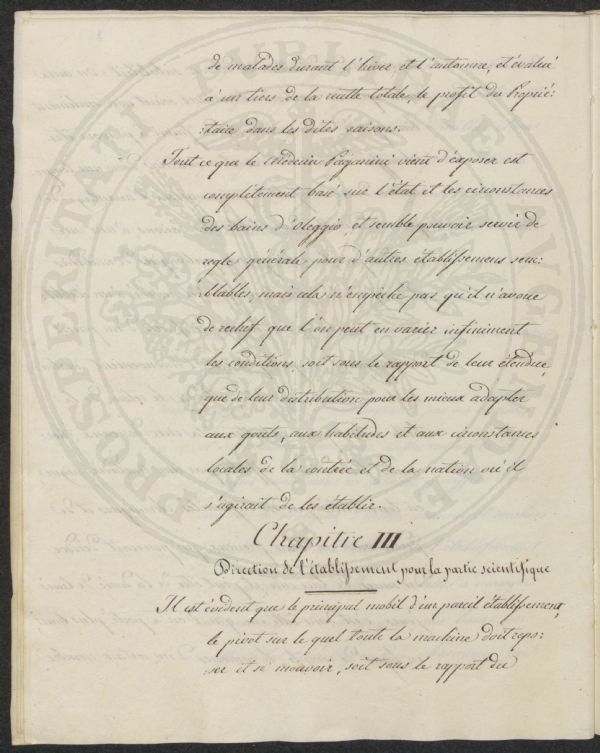 de malades durant l'hiver, et l'automne, et évalué
à un tiers de la recette totale, le profit du Proprié:
:taire dans les dites saisons.
Tout ce que le Médecin Paganini vient d'exposer est
complètement basé sur l'état et les circonstances
des bains d'Oleggio et semble pouvoir servir de
regle générale pour d'autres établissemens sem:
:blables, mais cela n'empêche pas qu'il n'avoue
de rechef que l'on peut en varier infiniment
les conditions soit sous le rapport de leur étendue,
que de leur distribution pour les mieux adapter
aux gouts, aux habitudes et aux circonstances
locales de la contrée et de la nation où il
s'agirait de les établir.
Chapitre III
Direction de l'établissement pour la partie scientifique
Il est évident que le principal mobil d'un pareil établissement,
le pivot sur le quel toute la machine doit repo:
ser et se mouvoir, soit sous le rapport du
PROSPERITATI PUBLICAE AUGENDAE